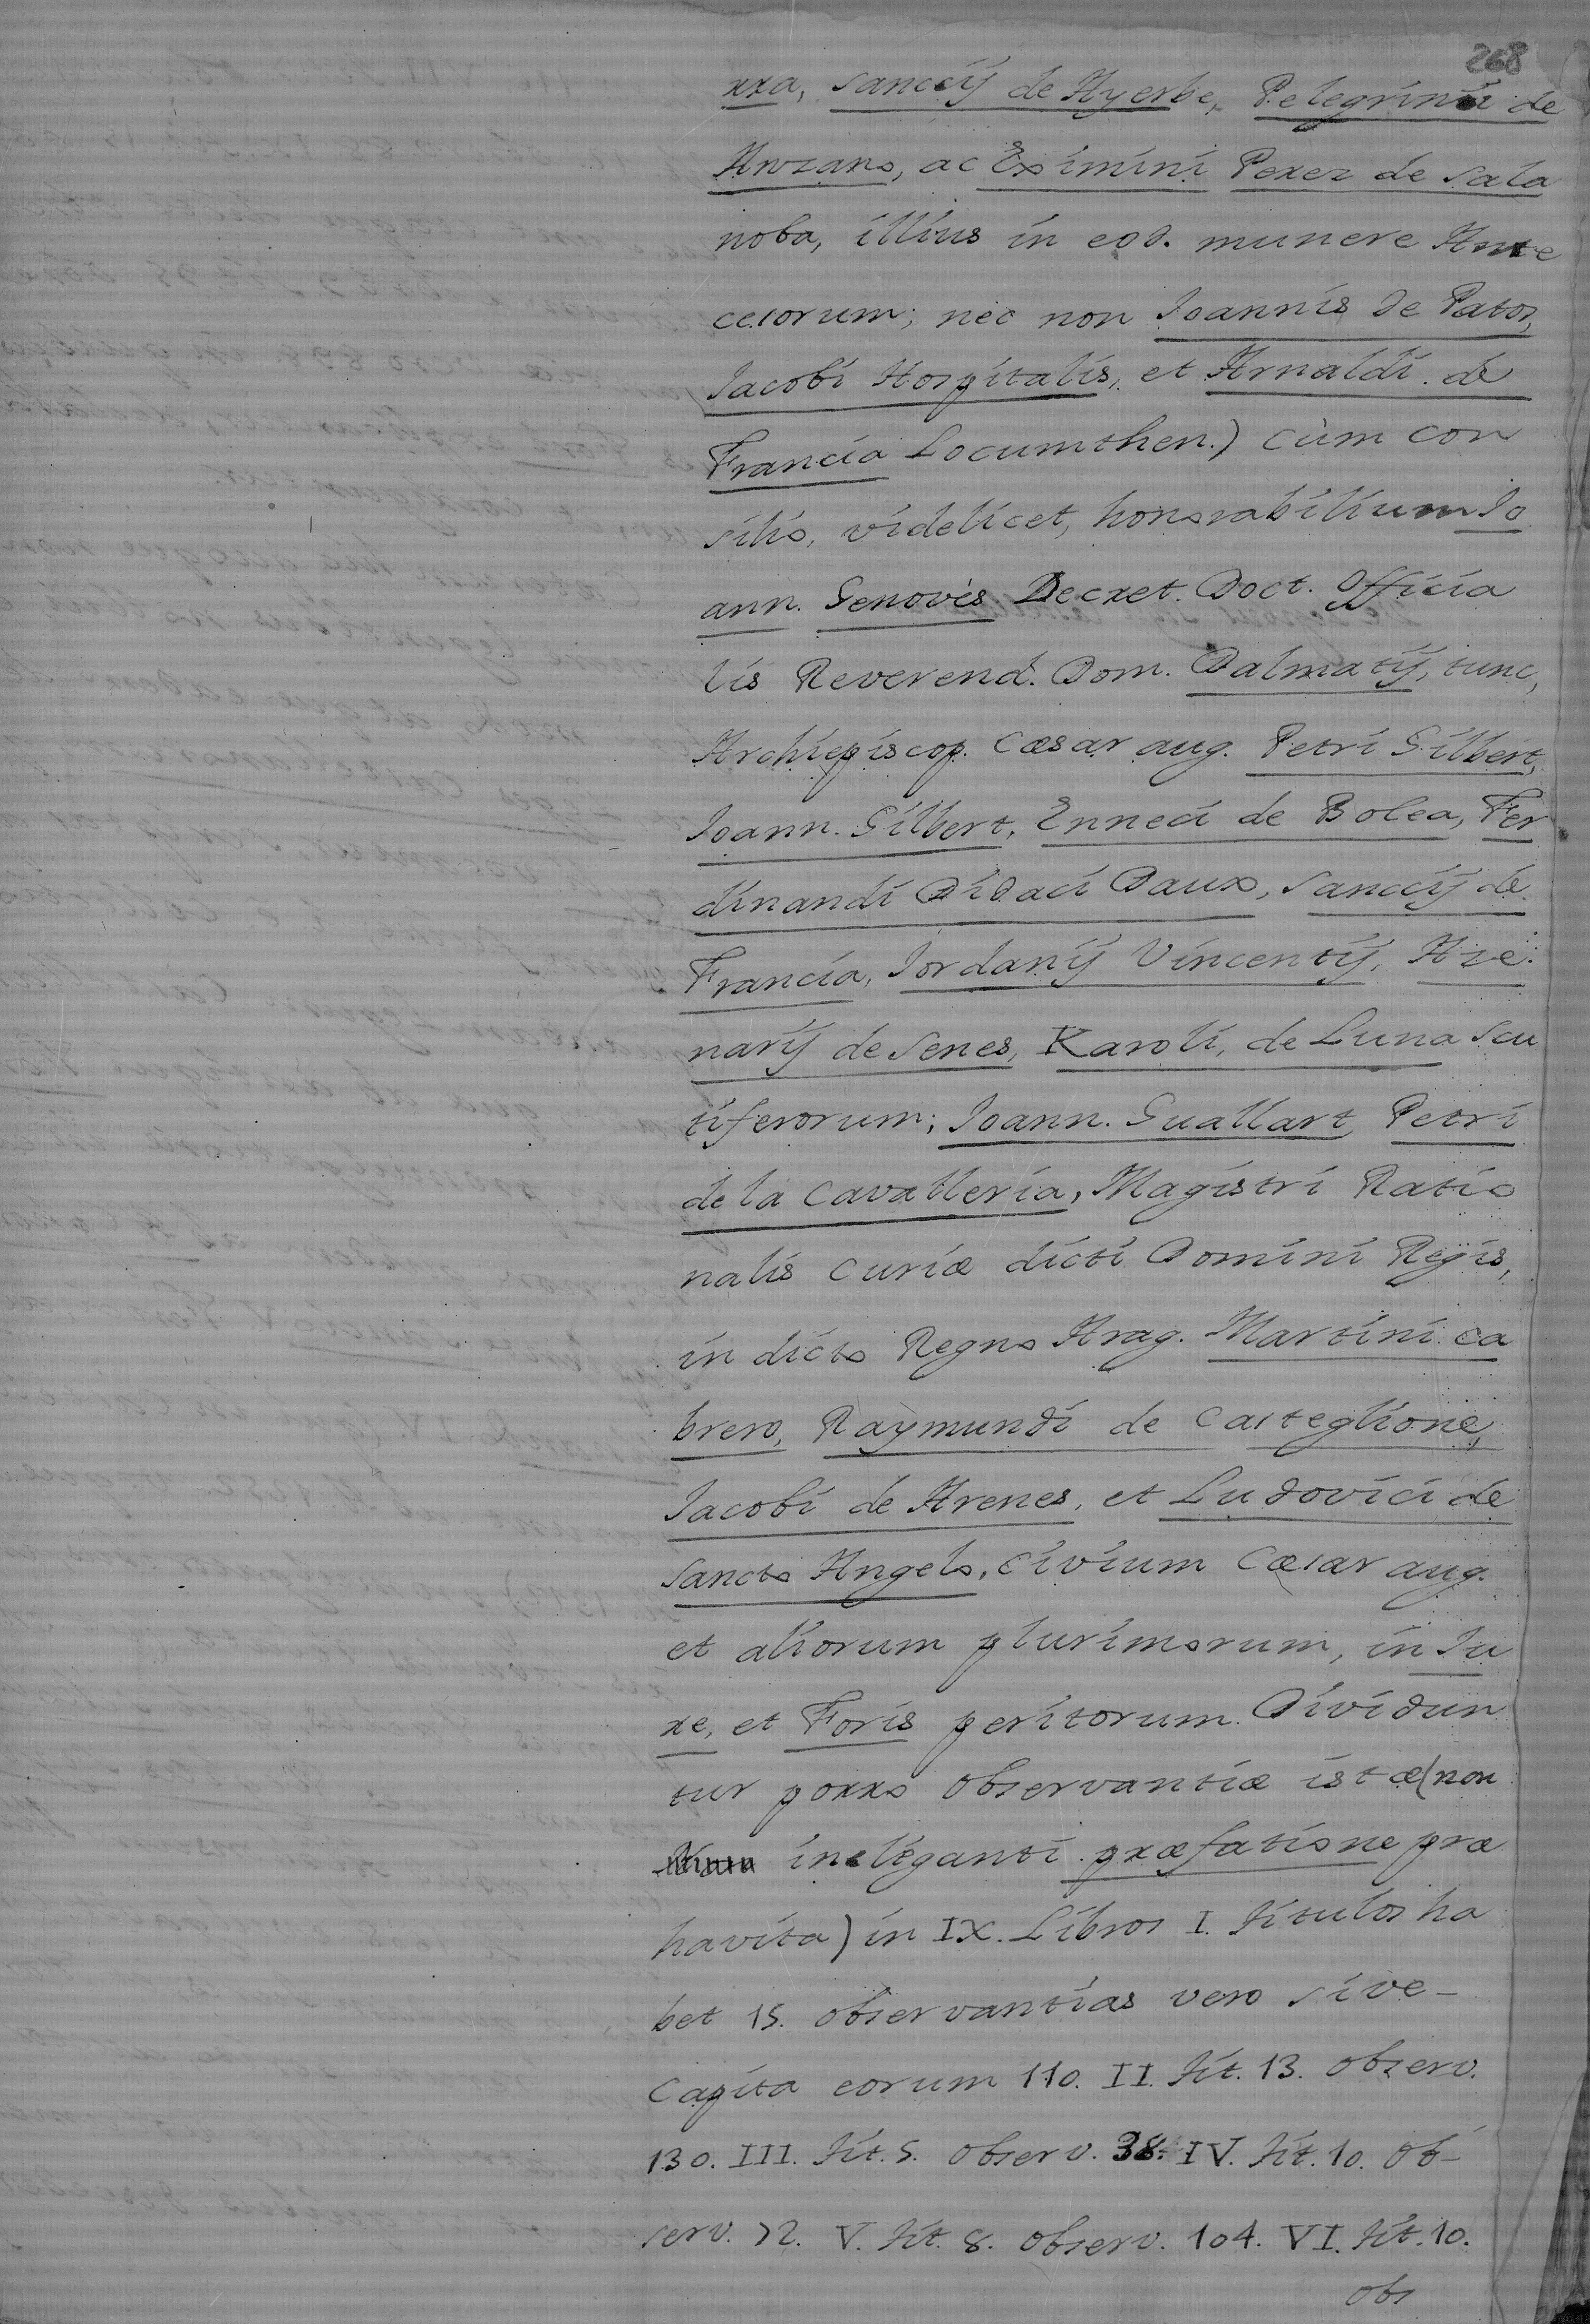 268
rra, Sancij de Ayerbe, Pelegrini de
Anzano, ac Eximini Perez de Sala
noba, illius in eod. munere Ante
cesorum; nec non Joannis de Patos,
Jacobi Hospitalis, et Arnaldi de
Francia Locumthen.) cùm con
silio, videlicet, honorabilium Jo
ann. Genovès Decret. Doct. Officia
lis Reverend. Dom. Dalmatij, tunc,
Archiepiscop. Cæsar aug. Petri Gilbert,
Joann. Gilbert, Enneci de Bolea, Fer
dinandi Didaci Daux, Sancij de
Francia, Jordanij Vincentij, Aze
narij de Senes, Karoli, de Luna scu
tiferorum; Joann. Guallart Petri
de la Cavalleria, Magistri Ratio
nalis Curiæ dicti Domini Regis,
in dicto Regno Arag. Martini Ca
brero, Raymundi de Casteglione,
Jacobi de Arenes, et Ludovici de
Sancto Angelo, civium Cæsar aug.
et aliorum plurimorum, in Ju
re, et Foris peritorum. Dividun
tur porro observantiæ istæ (non
ineleganti præfatione præ
havita) in IX. Libros I. titulos ha
bet 15. observantias vero sive-
Capita eorum 110. II. tit. 13. observ.
130. III. tit. 5. observ. 38. IV. tit. 10. ob-
serv. 72. V. tit. 8. observ. 104. VI. tit. 10.
obs